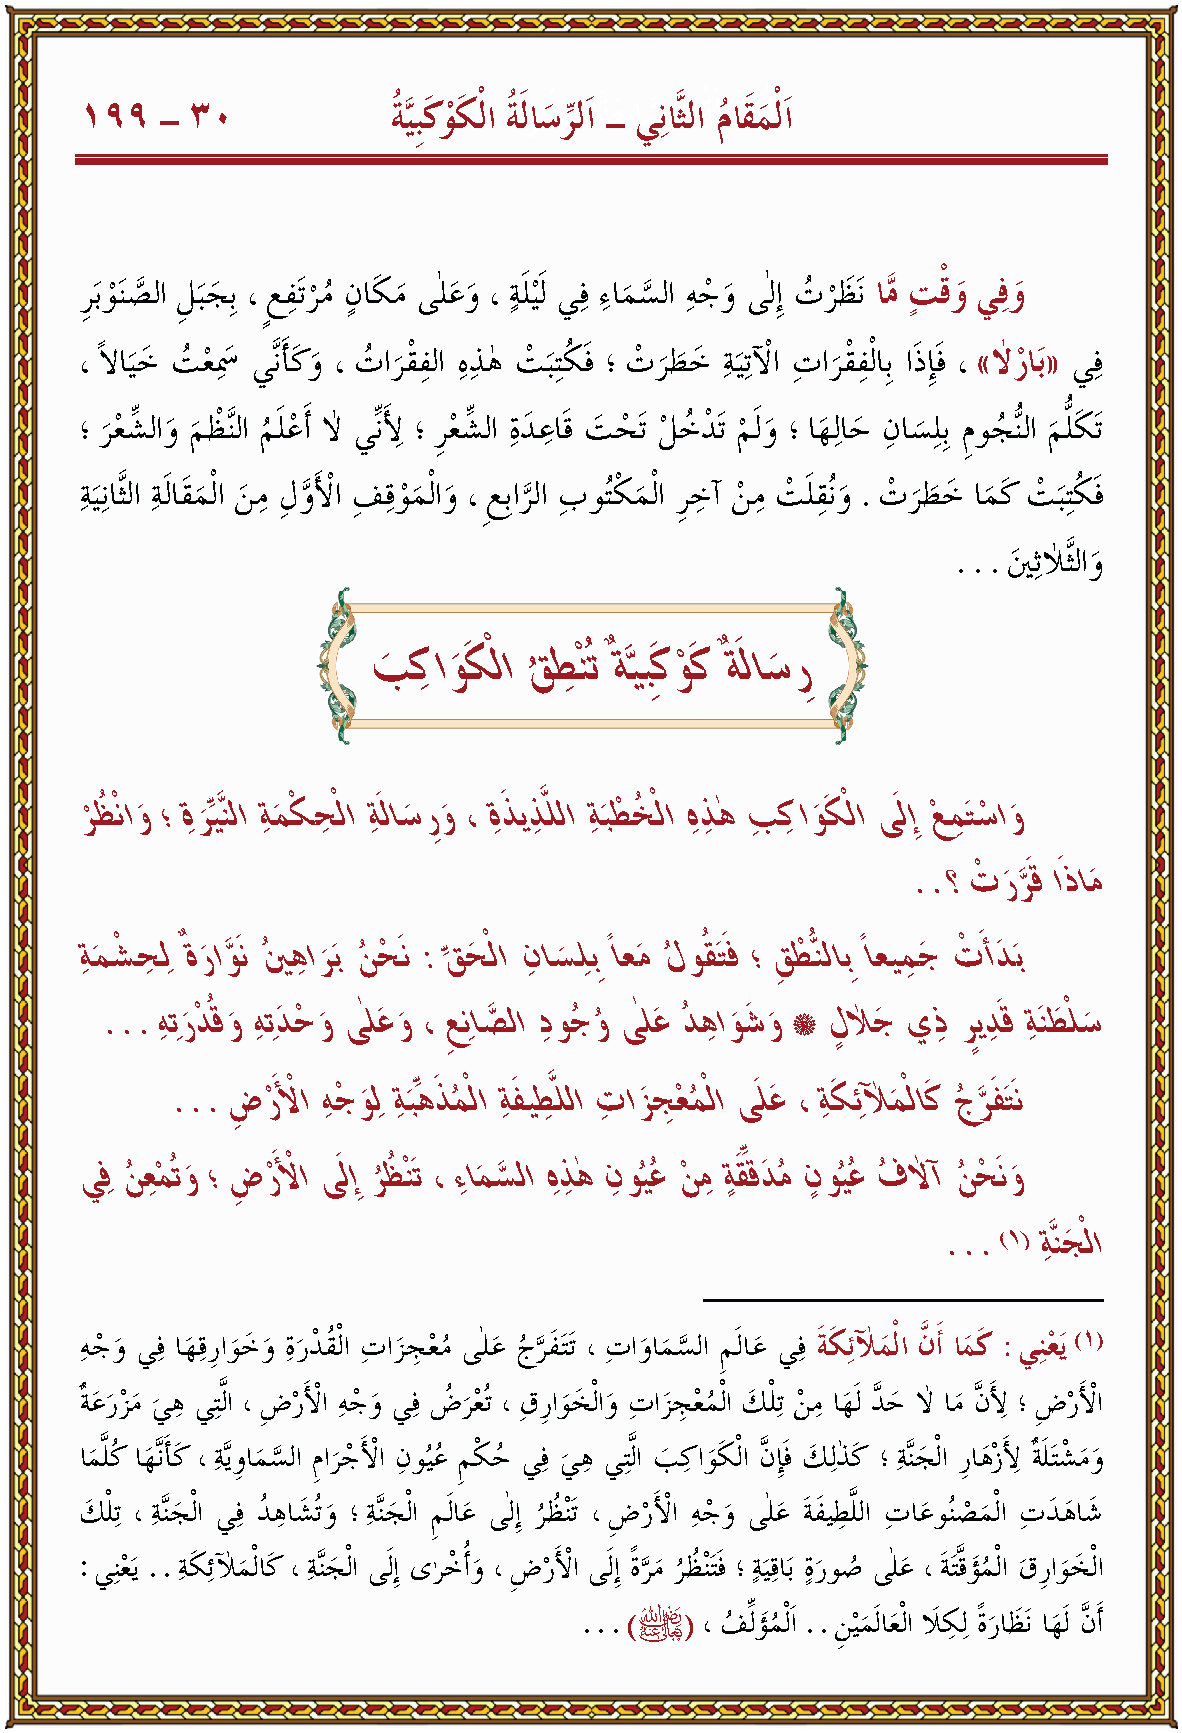 اَلْمَقَامُ الثَّانِي ــ اَلرِّسَالَةُ الْكَوْكَبِيَّةُ ٣٠ ــ ١٩٩
وَفِي وَقْتٍ مَّا نَظَرْتُ إِلٰى وَجْهِ السَّمَاءِ فِي لَيْلَةٍ ، وَعَلٰى مَكَانٍ مُرْتَفِعٍ ، بِجَبَلِ الصَّنَوْبَرِ
فِي «بَارْلاٰ» ، فَإِذَا بِالْفِقْرَاتِ الْآتِيَةِ خَطَرَتْ ؛ فَكُتِبَتْ هٰذِهِ الْفِقْرَاتُ ، وَكَأَنِّي سَمِعْتُ خَيَالاً ،
تَكَلُّمَ النُّجُومِ بِلِسَانِ حَالِهَا ؛ وَلَمْ تَدْخُلْ تَحْتَ قَاعِدَةِ الشِّعْرِ ؛ لِأَنِّي لاٰ أَعْلَمُ النَّظْمَ وَالشِّعْرَ ؛
فَكُتِبَتْ كَمَا خَطَرَتْ . وَنُقِلَتْ مِنْ آخِرِ الْمَكْتُوبِ الرَّابِعِ ، وَالْمَوْقِفِ الْأَوَّلِ مِنَ الْمَقَالَةِ الثَّانِيَةِ
وَالثَّلاٰثِينَ . . .
رِسَالَةٌ كَوْكَبِيَّةٌ تُنْطِقُ الْكَوَاكِبَ
وَاسْتَمِعْ إِلَى الْكَوَاكِبِ هٰذِهِ الْخُطْبَةِ اللَّذِيذَةِ ، وَرِسَالَةِ الْحِكْمَةِ النَّيِّرَةِ ؛ وَانْظُرْ
مَاذَا قَرَّرَتْ ؟ . .
بَدَأَتْ جَمِيعاً بِالنُّطْقِ ؛ فَتَقُولُ مَعاً بِلِسَانِ الْحَقِّ : نَحْنُ بَرَاهِينُ نَوَّارَةٌ لِحِشْمَةِ
سَلْطَنَةِ قَدِيرٍ ذِي جَلاٰلٍ ۞ وَشَوَاهِدُ عَلٰى وُجُودِ الصَّانِعِ ، وَعَلٰى وَحْدَتِهِ وَقُدْرَتِهِ . . .
نَتَفَرَّجُ كَالْمَلاٰئِكَةِ ، عَلَى الْمُعْجِزَاتِ اللَّطِيفَةِ الْمُذَهِّبَةِ لِوَجْهِ الْأَرْضِ . . .
وَنَحْنُ آلاٰفُ عُيُونٍ مُدَقِّقَةٍ مِنْ عُيُونِ هٰذِهِ السَّمَاءِ ، تَنْظُرُ إِلَى الْأَرْضِ ؛ وَتُمْعِنُ فِي
الْجَنَّةِ (١) . . .
(١) يَعْنِي : كَمَا أَنَّ الْمَلاٰئِكَةَ فِي عَالَمِ السَّمَاوَاتِ ، تَتَفَرَّجُ عَلٰى مُعْجِزَاتِ الْقُدْرَةِ وَخَوَارِقِهَا فِي وَجْهِ
الْأَرْضِ ؛ لِأَنَّ مَا لاٰ حَدَّ لَهَا مِنْ تِلْكَ الْمُعْجِزَاتِ وَالْخَوَارِقِ ، تُعْرَضُ فِي وَجْهِ الْأَرْضِ ، الَّتِي هِيَ مَزْرَعَةٌ
وَمَشْتَلَةٌ لِأَزْهَارِ الْجَنَّةِ ؛ كَذٰلِكَ فَإِنَّ الْكَوَاكِبَ الَّتِي هِيَ فِي حُكْمِ عُيُونِ الْأَجْرَامِ السَّمَاوِيَّةِ ، كَأَنَّهَا كُلَّمَا
شَاهَدَتِ الْمَصْنُوعَاتِ اللَّطِيفَةَ عَلٰى وَجْهِ الْأَرْضِ ، تَنْظُرُ إِلٰى عَالَمِ الْجَنَّةِ ؛ وَتُشَاهِدُ فِي الْجَنَّةِ ، تِلْكَ
الْخَوَارِقَ الْمُؤَقَّتَةَ ، عَلٰى صُورَةٍ بَاقِيَةٍ ؛ فَتَنْظُرُ مَرَّةً إِلَى الْأَرْضِ ، وَأُخْرٰى إِلَى الْجَنَّةِ ، كَالْمَلاٰئِكَةِ . . يَعْنِي :
أَنَّ لَهَا نَظَارَةً لِكِلاَ الْعَالَمَيْنِ . . اَلْمُؤَلِّفُ ، (رَضِيَ اللهُ تَعَالٰى عَنْهُ) . . .